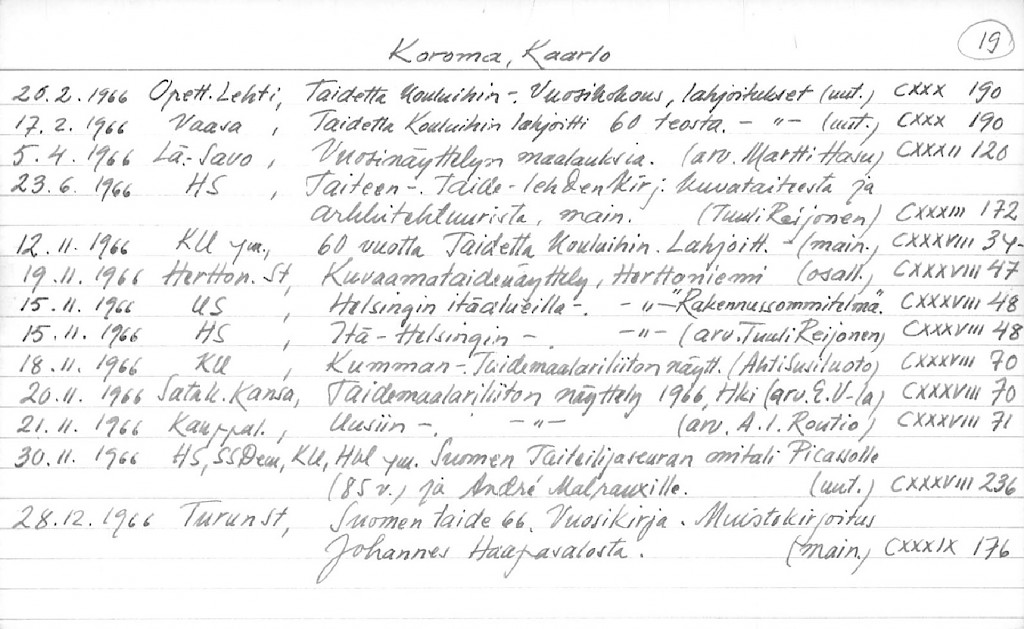 19
Koroma, Kaarlo
20.2.1966 Opett. Lehti, Taidetta Kouluihin-. Vuosikokous, lahjoitukset (uut.) CXXX 190
17.2.1966 Vaasa, Taidetta Kouluihin lahjoitti 60 teosta. - " - (uut.) CXXX 190
5.4.1966 Lä.-Savo, Vuosinäyttelyn maalauksia. (arv. Martti Hasu) CXXXII 120
23.6.1966 HS, Taiteen-. Taide-lehden kirj. kuvataiteesta ja
arkkitehtuurista, main. (Tuuli Reijonen) CXXXIII 172
12.11.1966 KU ym., 60 vuotta Taidetta Kouluihin. Lahjoitt. - (main.) CXXXVIII 34-
19.11.1966 Hertton. St, Kuvaamataidenäyttely, Herttoniemi (osall.) CXXXVIII 47
15.11.1966 US, Helsingin itäalueilla-. - " - "Rakennussommitelma". CXXXVIII 48
15.11.1966 HS, Itä-Helsingin-. - " - (arv. Tuuli Reijonen) CXXXVIII 48
18.11.1966 KU, Kumman-. Taidemaalariliiton näytt. (Ahti Susiluoto) CXXXVIII 70
20.11.1966 Satak. Kansa, Taidemaalariliiton näyttely 1966, Hki (arv. E.V-la) CXXXVIII 70
21.11.1966 Kauppal., Uusiin-. - " - (arv. A.I. Routio) CXXXVIII 71
30.11.1966 HS, SSDem, KU, Hbl ym. Suomen Taiteilijaseuran mitali Picassolle
(85 v.) ja André Malrauxille. (uut.) CXXXVIII 236
28.12.1966 Turun St, Suomen taide 66. Vuosikirja. Muistokirjoitus
Johannes Haapasalosta. (main.) CXXXIX 176